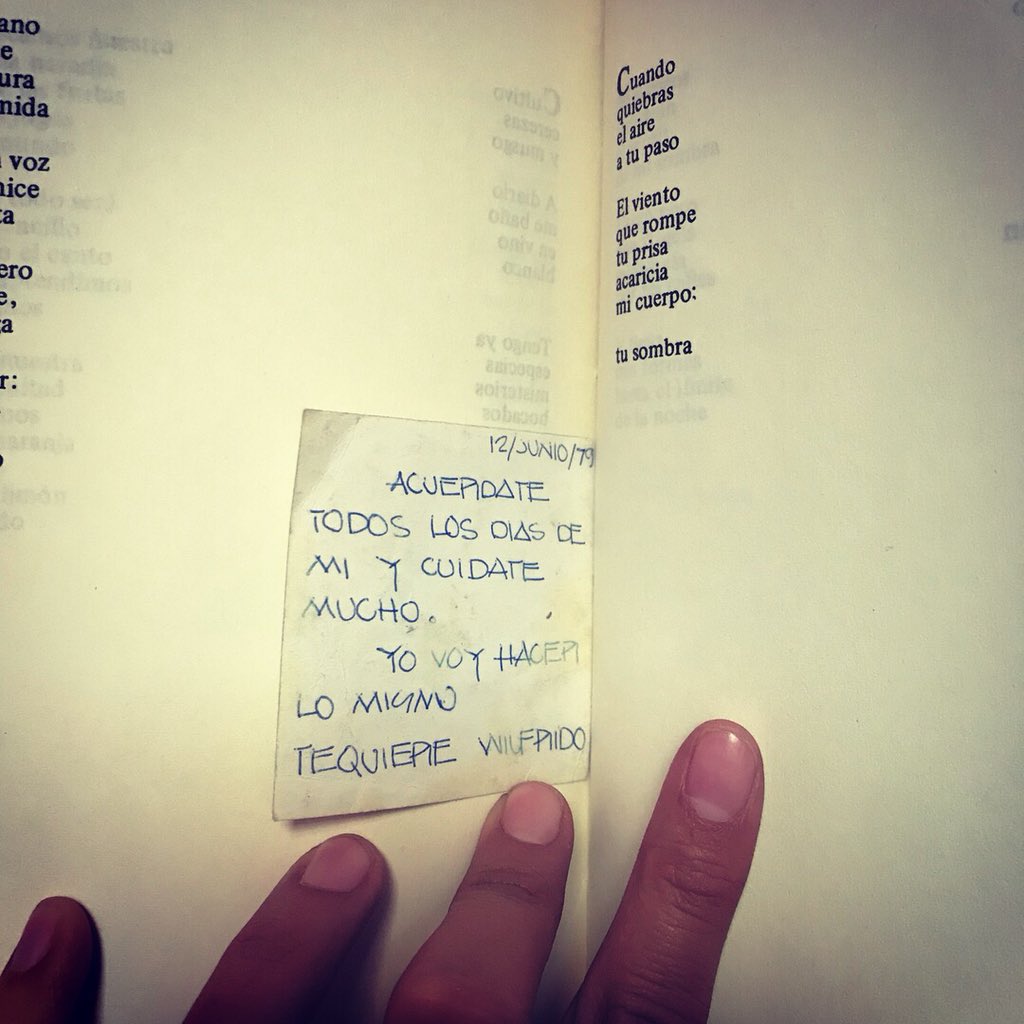 ano
e
ura
nida
voz
nice
ta
ero
e,
ga
r:
o
12/JUNIO/79
ACUERDATE
TODOS LOS DIAS DE
MI Y CUIDATE
MUCHO.
YO VOY HACER
LO MISMO
TEQUIERE WILFRIDO
Cuando
quiebras
el aire
a tu paso
El viento
que rompe
tu prisa
acaricia
mi cuerpo:
tu sombra